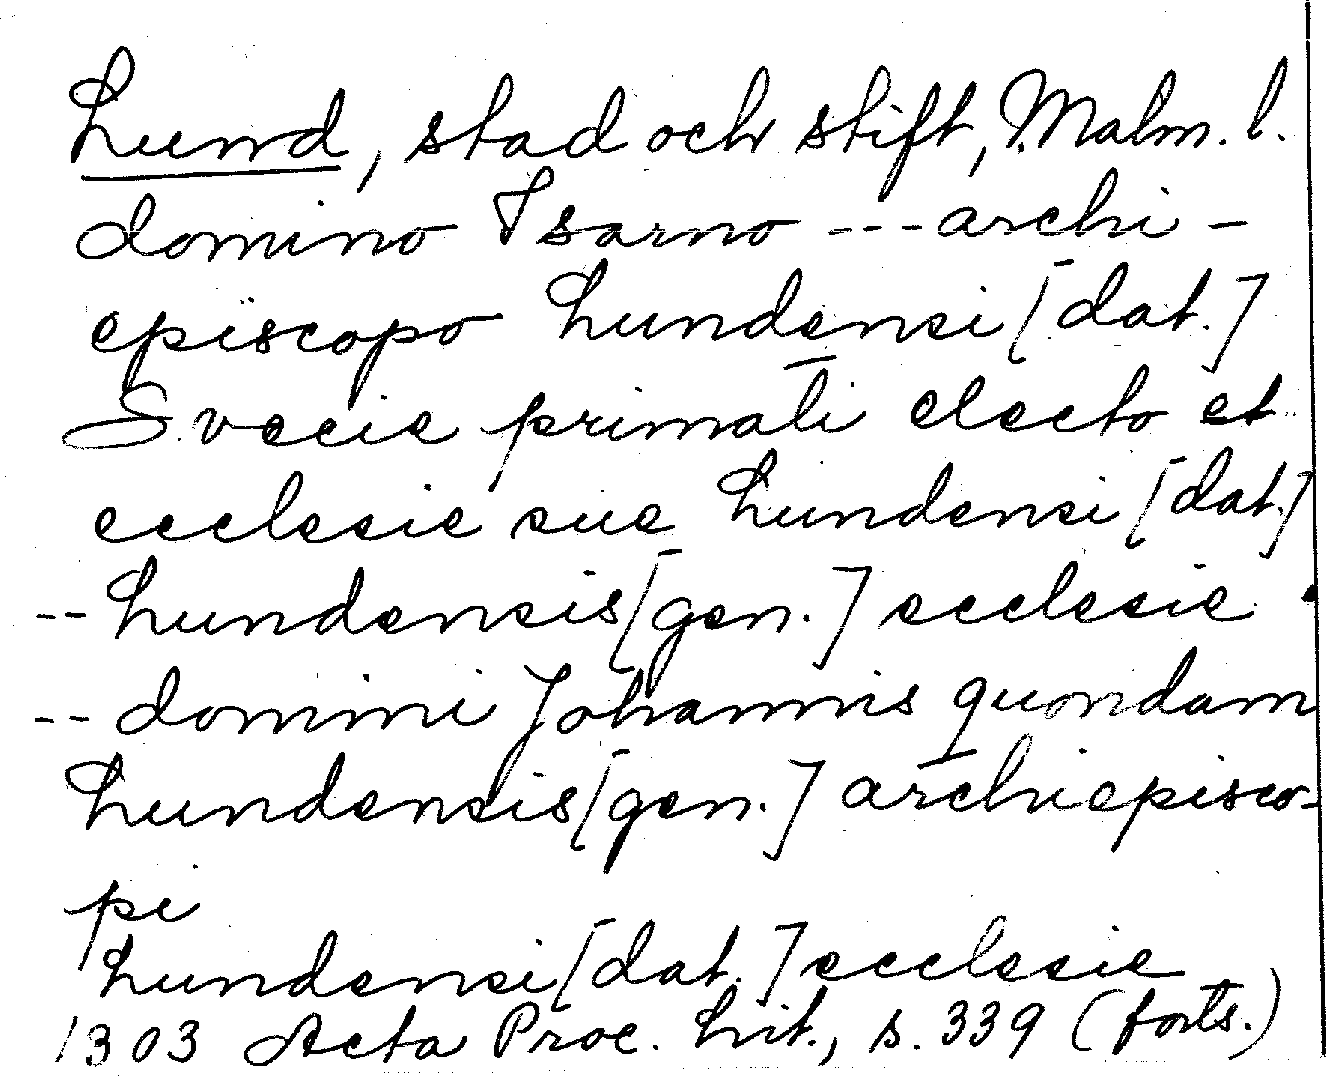 Lund, stad och stift, Malm. l.
domino Isarno --- archi-
episcopo Lundensi [dat.]
Svecie primati electo et
ecclesie sue Lundensi [dat.]
-- Lundensis [gen.] ecclesie
-- domini Johannis quondam
Lundensis [gen.] archiepisco-
pi
Lundensi [dat.] ecclesie
1303 Acta Proc. Lit., s. 339 (forts.)